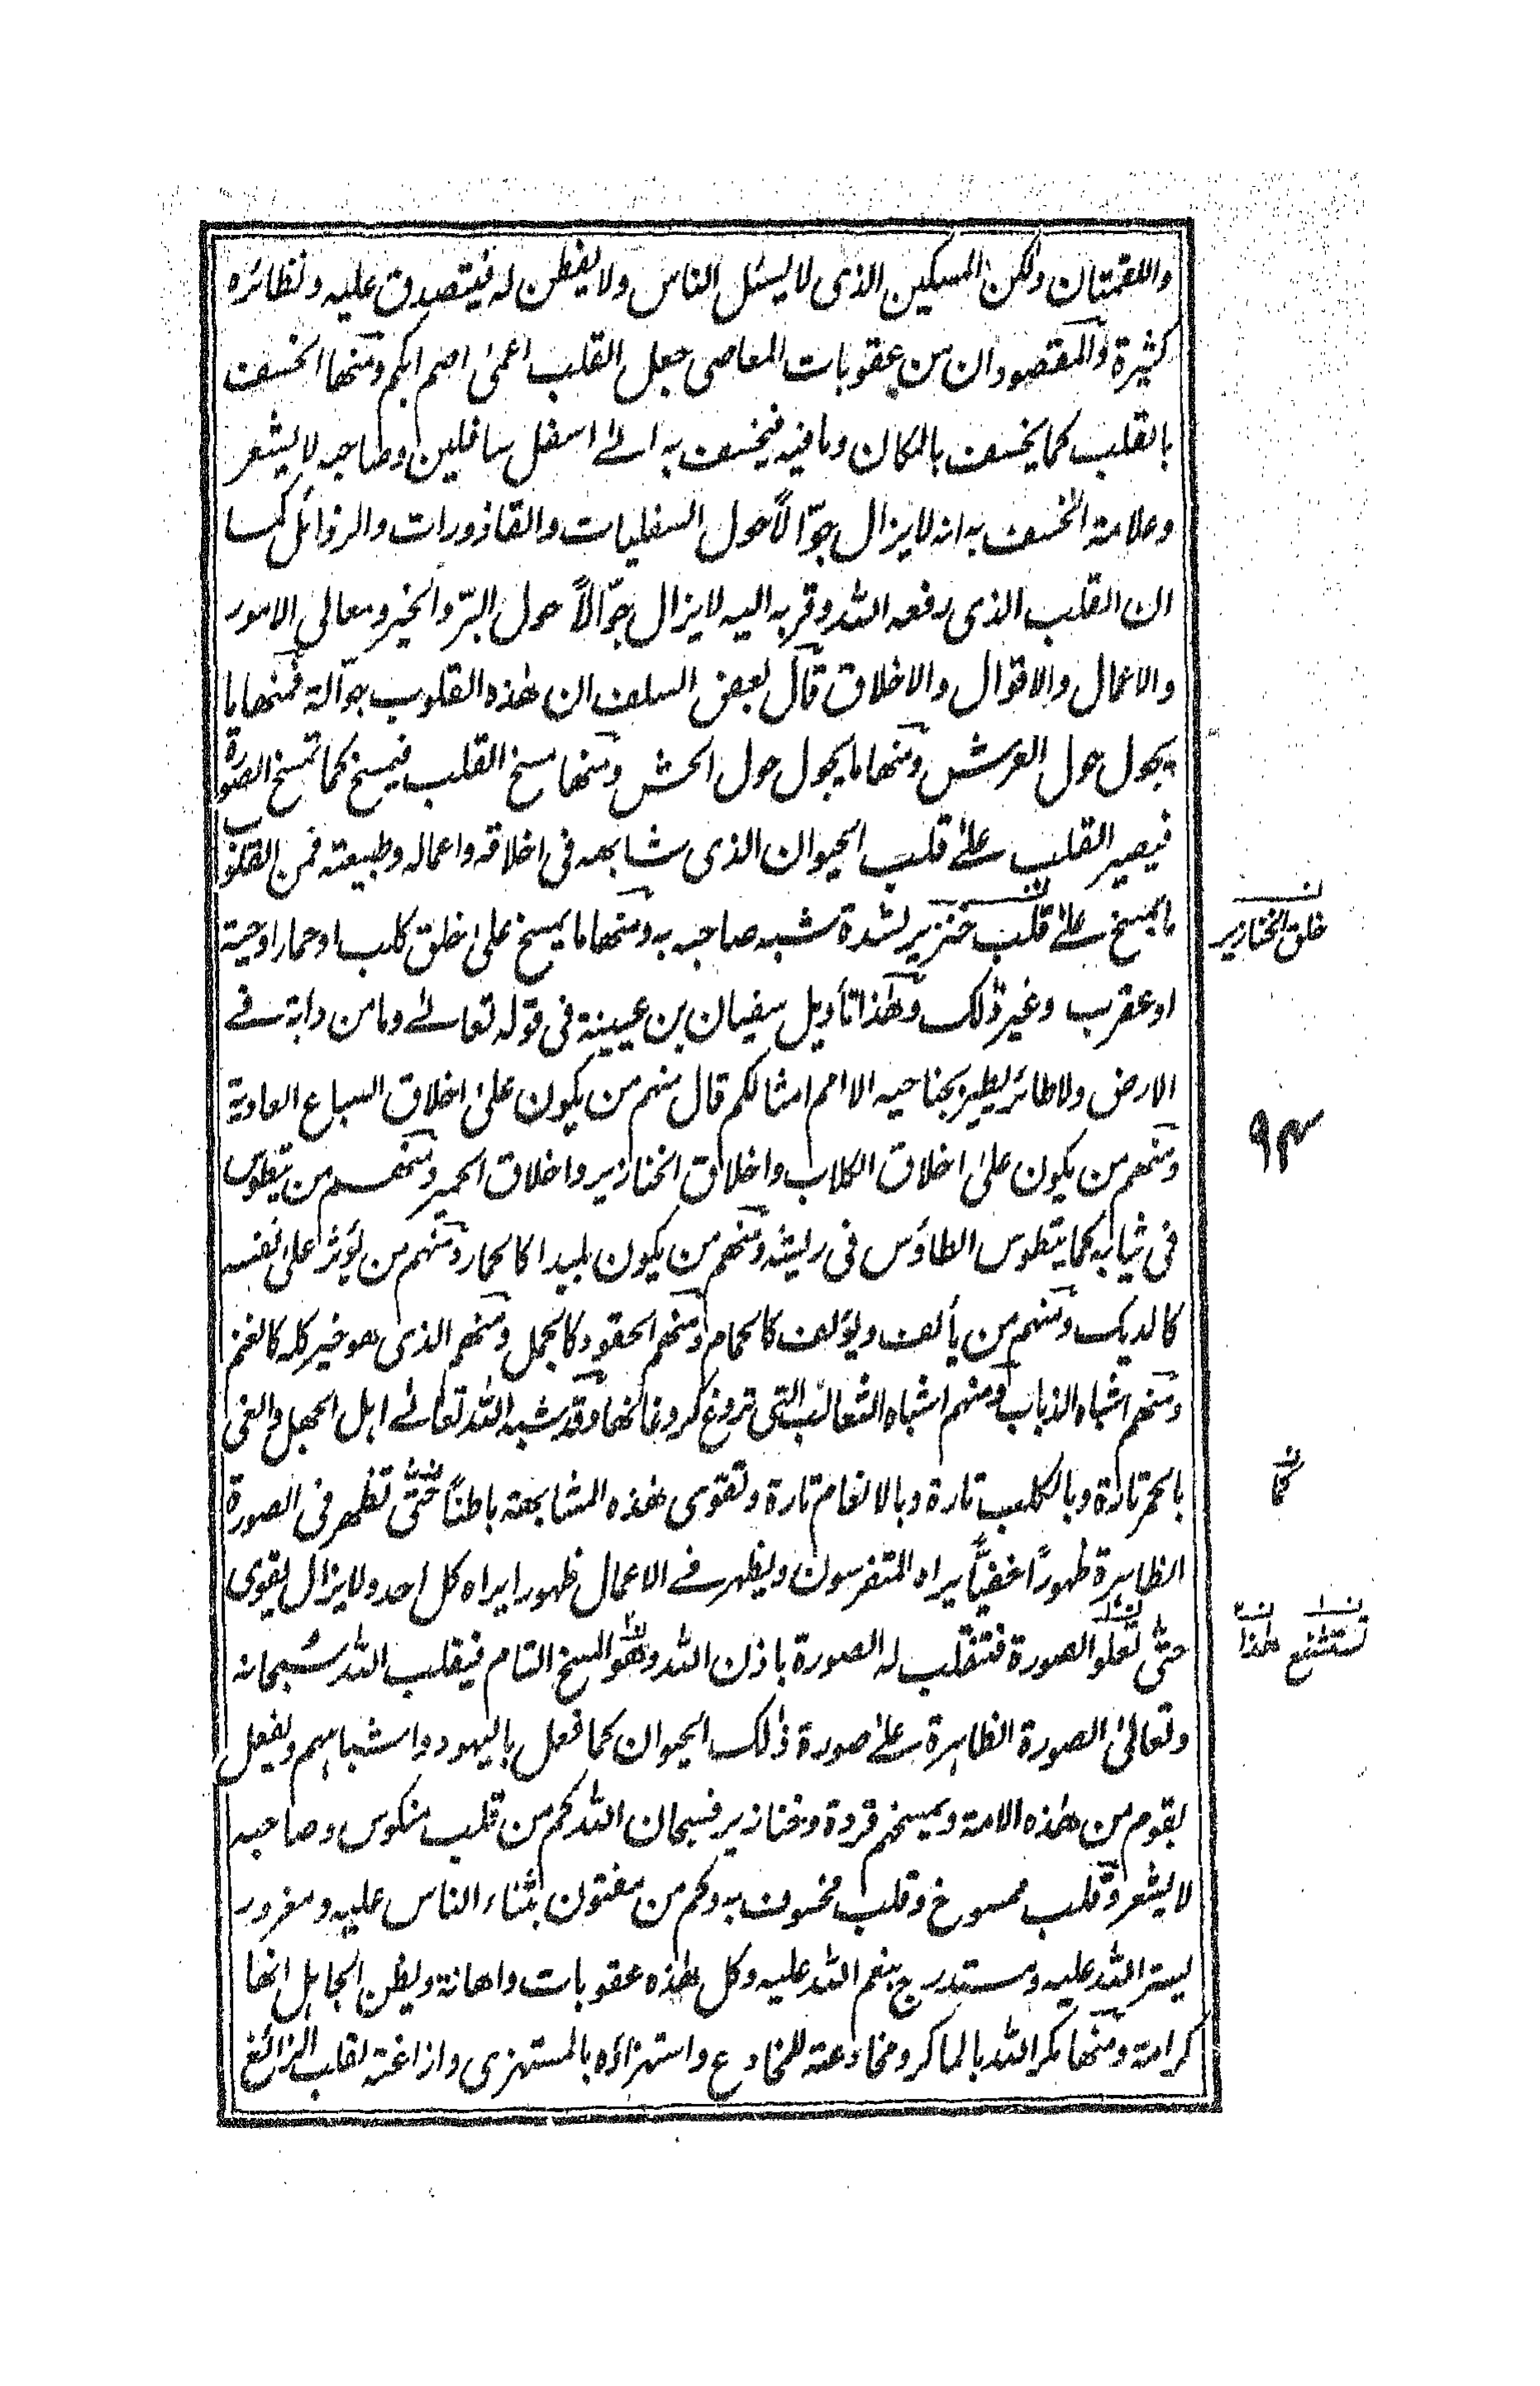 واللقمتان ولكن المسكين الذى لا يسئل الناس ولا يفطن له فيتصدق عليه ونظائره
كثيرة والمقصود ان من عقوبات المعاصى جعل القلب اعمىٰ اصم ابكم ومنها الخسف
بالقلب كما يخسف بالمكان وما فيه فيخسف به الىٰ اسفل سافلين وصاحبه لا يشعر
وعلامة الخسف به انه لا يزال جوّالاً حول السفليات والقاذورات والرذائل كما
ان القلب الذى رفعه الله وقربه اليه لا يزال جوّالاً حول البرّ والخير ومعالى الامور
والاعمال والاقوال والاخلاق قال بعض السلف ان هٰذه القلوب جوّالة فمنها ما
يجول حول العرش ومنها ما يجول حول الحش ومنها مسخ القلب فيمسخ كما تمسخ الصورة
فيصير القلب علىٰ قلب الحيوان الذى شابهه فى اخلاقه واعماله وطبيعته فمن القلوب
ما يمسخ علىٰ قلب خنزير لشدة شبه صاحبه به ومنها ما يمسخ علىٰ خلق كلب او حمار او حية
خلق الخنازير
او عقرب وغير ذٰلك وهٰذا تأويل سفيان بن عيينة فى قوله تعالىٰ وما من دابة فى
الارض ولا طائر يطير بجناحيه الا امم امثالكم قال منهم من يكون علىٰ اخلاق السباع العادية
٩٣
ومنهم من يكون علىٰ اخلاق الكلاب واخلاق الخنازير واخلاق الحمير ومنهم من يتطوس
فى ثيابه كما يتطوس الطاؤس فى ريشه ومنهم من يكون بليدا كالحمار ومنهم من يؤثر علىٰ نفسه
كالديك ومنهم من يألف ويؤلف كالحمام ومنهم الحقود كالجمل ومنهم الذى هو خير كله كالغنم
ومنهم اشباه الذباب ومنهم اشباه الثعالب التى تروغ كروغانها وقد شبه الله تعالىٰ اهل الجهل والغى
بالحمر تارة وبالكلب تارة وبالانعام تارة وتقوى هٰذه المشابهة باطناً حتىٰ تظهر فى الصورة
كما
الظاهرة ظهوراً خفيّاً يراه المتفرسون ويظهر فى الاعمال ظهورا يراه كل احد ولا يزال يقوى
حتىٰ تعلو الصورة فتنقلب له الصورة باذن الله وهو المسخ التام فيقلب الله سبحانه
تستشنع هٰذا
وتعالىٰ الصورة الظاهرة علىٰ صورة ذٰلك الحيوان كما فعل باليهود واشباههم ويفعل
بقوم من هٰذه الامة ويمسخهم قردة وخنازير فسبحان الله كم من قلب منكوس وصاحبه
لا يشعر وقلب ممسوخ وقلب مخسوف به وكم من مفتون بثناء الناس عليه ومغرور
بستر الله عليه ومستدرج بنعم الله عليه وكل هٰذه عقوبات واهانة ويظن الجاهل انها
كرامة ومنها مكر الله بالماكر ومخادعته للمخادع واستهزاؤه بالمستهزى وازاغته لقلب الزائغ